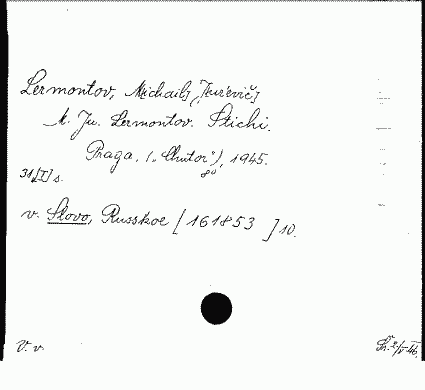 Lermontov, Michail [Jur'evič]
M. Ju. Lermontov. Stichi.
Praga, („Chutor“), 1945.
8°
31 [I] s.
v. Slovo, Russkoe [161853 ] 10.
V. v.
2/V 46.